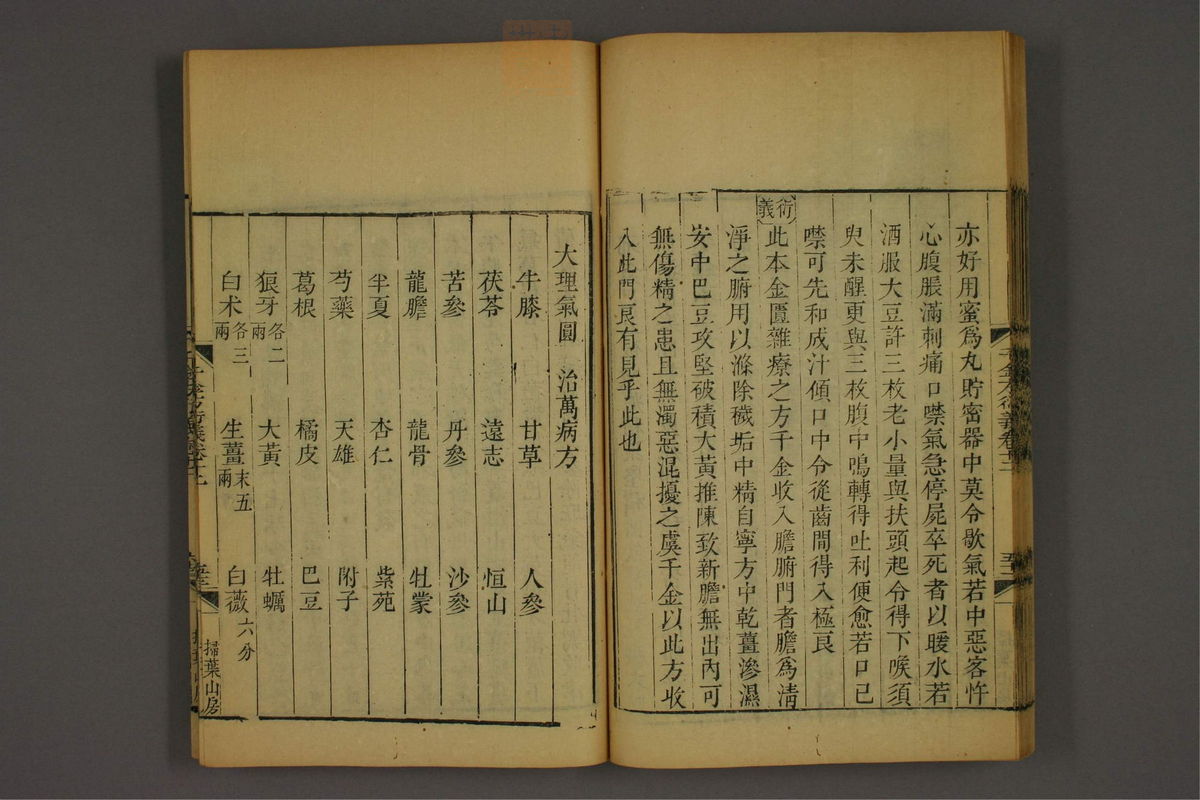 亦好用蜜為丸貯密器中莫令歇氣若中惡客忤
心腹脹滿刺痛口噤氣急停屍卒死者以暖水若
酒服大豆許三枚老小量與扶頭起令得下喉須
臾未醒更與三枚腹中鳴轉得吐利便愈若口已
噤可先和成汁傾口中令從齒間得入極良
衍義
此本金匱雜療之方千金收入膽腑門者膽為清
淨之腑用以滌除穢垢中精自寧方中乾薑滲濕
安中巴豆攻堅破積大黃推陳致新膽無出內可
無傷精之患且無濁惡混擾之虞千金以此方收
入此門良有見乎此也
大理氣圓 治萬病方
牛膝 甘草 人參
茯苓 遠志 恒山
苦參 丹參 沙參
龍膽 龍骨 牡蒙
半夏 杏仁 紫苑
芍藥 天雄 附子
葛根 橘皮 巴豆
狼牙各二兩 大黃 牡蠣
白朮各三兩 生薑末五兩 白薇六分
掃葉山房